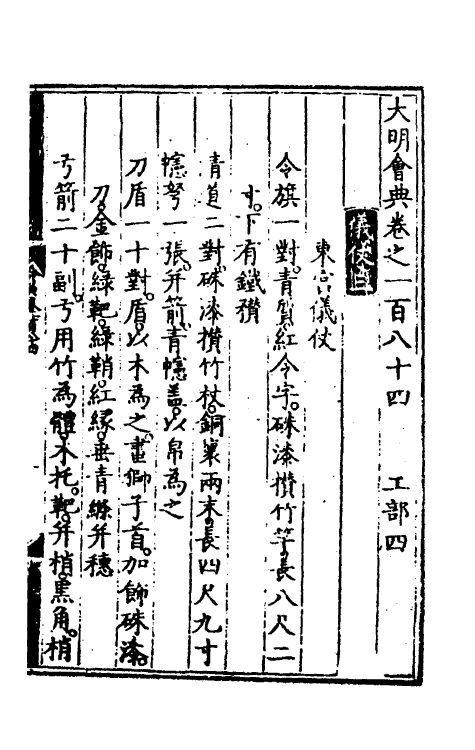 大明會典卷之一百八十四 工部四
儀仗三
東宮儀仗
令旗一對。青質。紅令字。硃漆攢竹竿。長八尺二
寸。下有鐵䥎
清道二對。硃漆攢竹杖。銅裹兩末。長四尺九寸
幰弩一張。幷箭。青幰蓋。以帛為之
刀盾一十對。盾。以木為之。畫獅子首。加飾硃漆。
刀。金飾。綠靶。綠鞘。紅縁。垂青縧幷穗
弓箭二十副。弓用竹為體。木托。靶。幷梢。黑角。梢